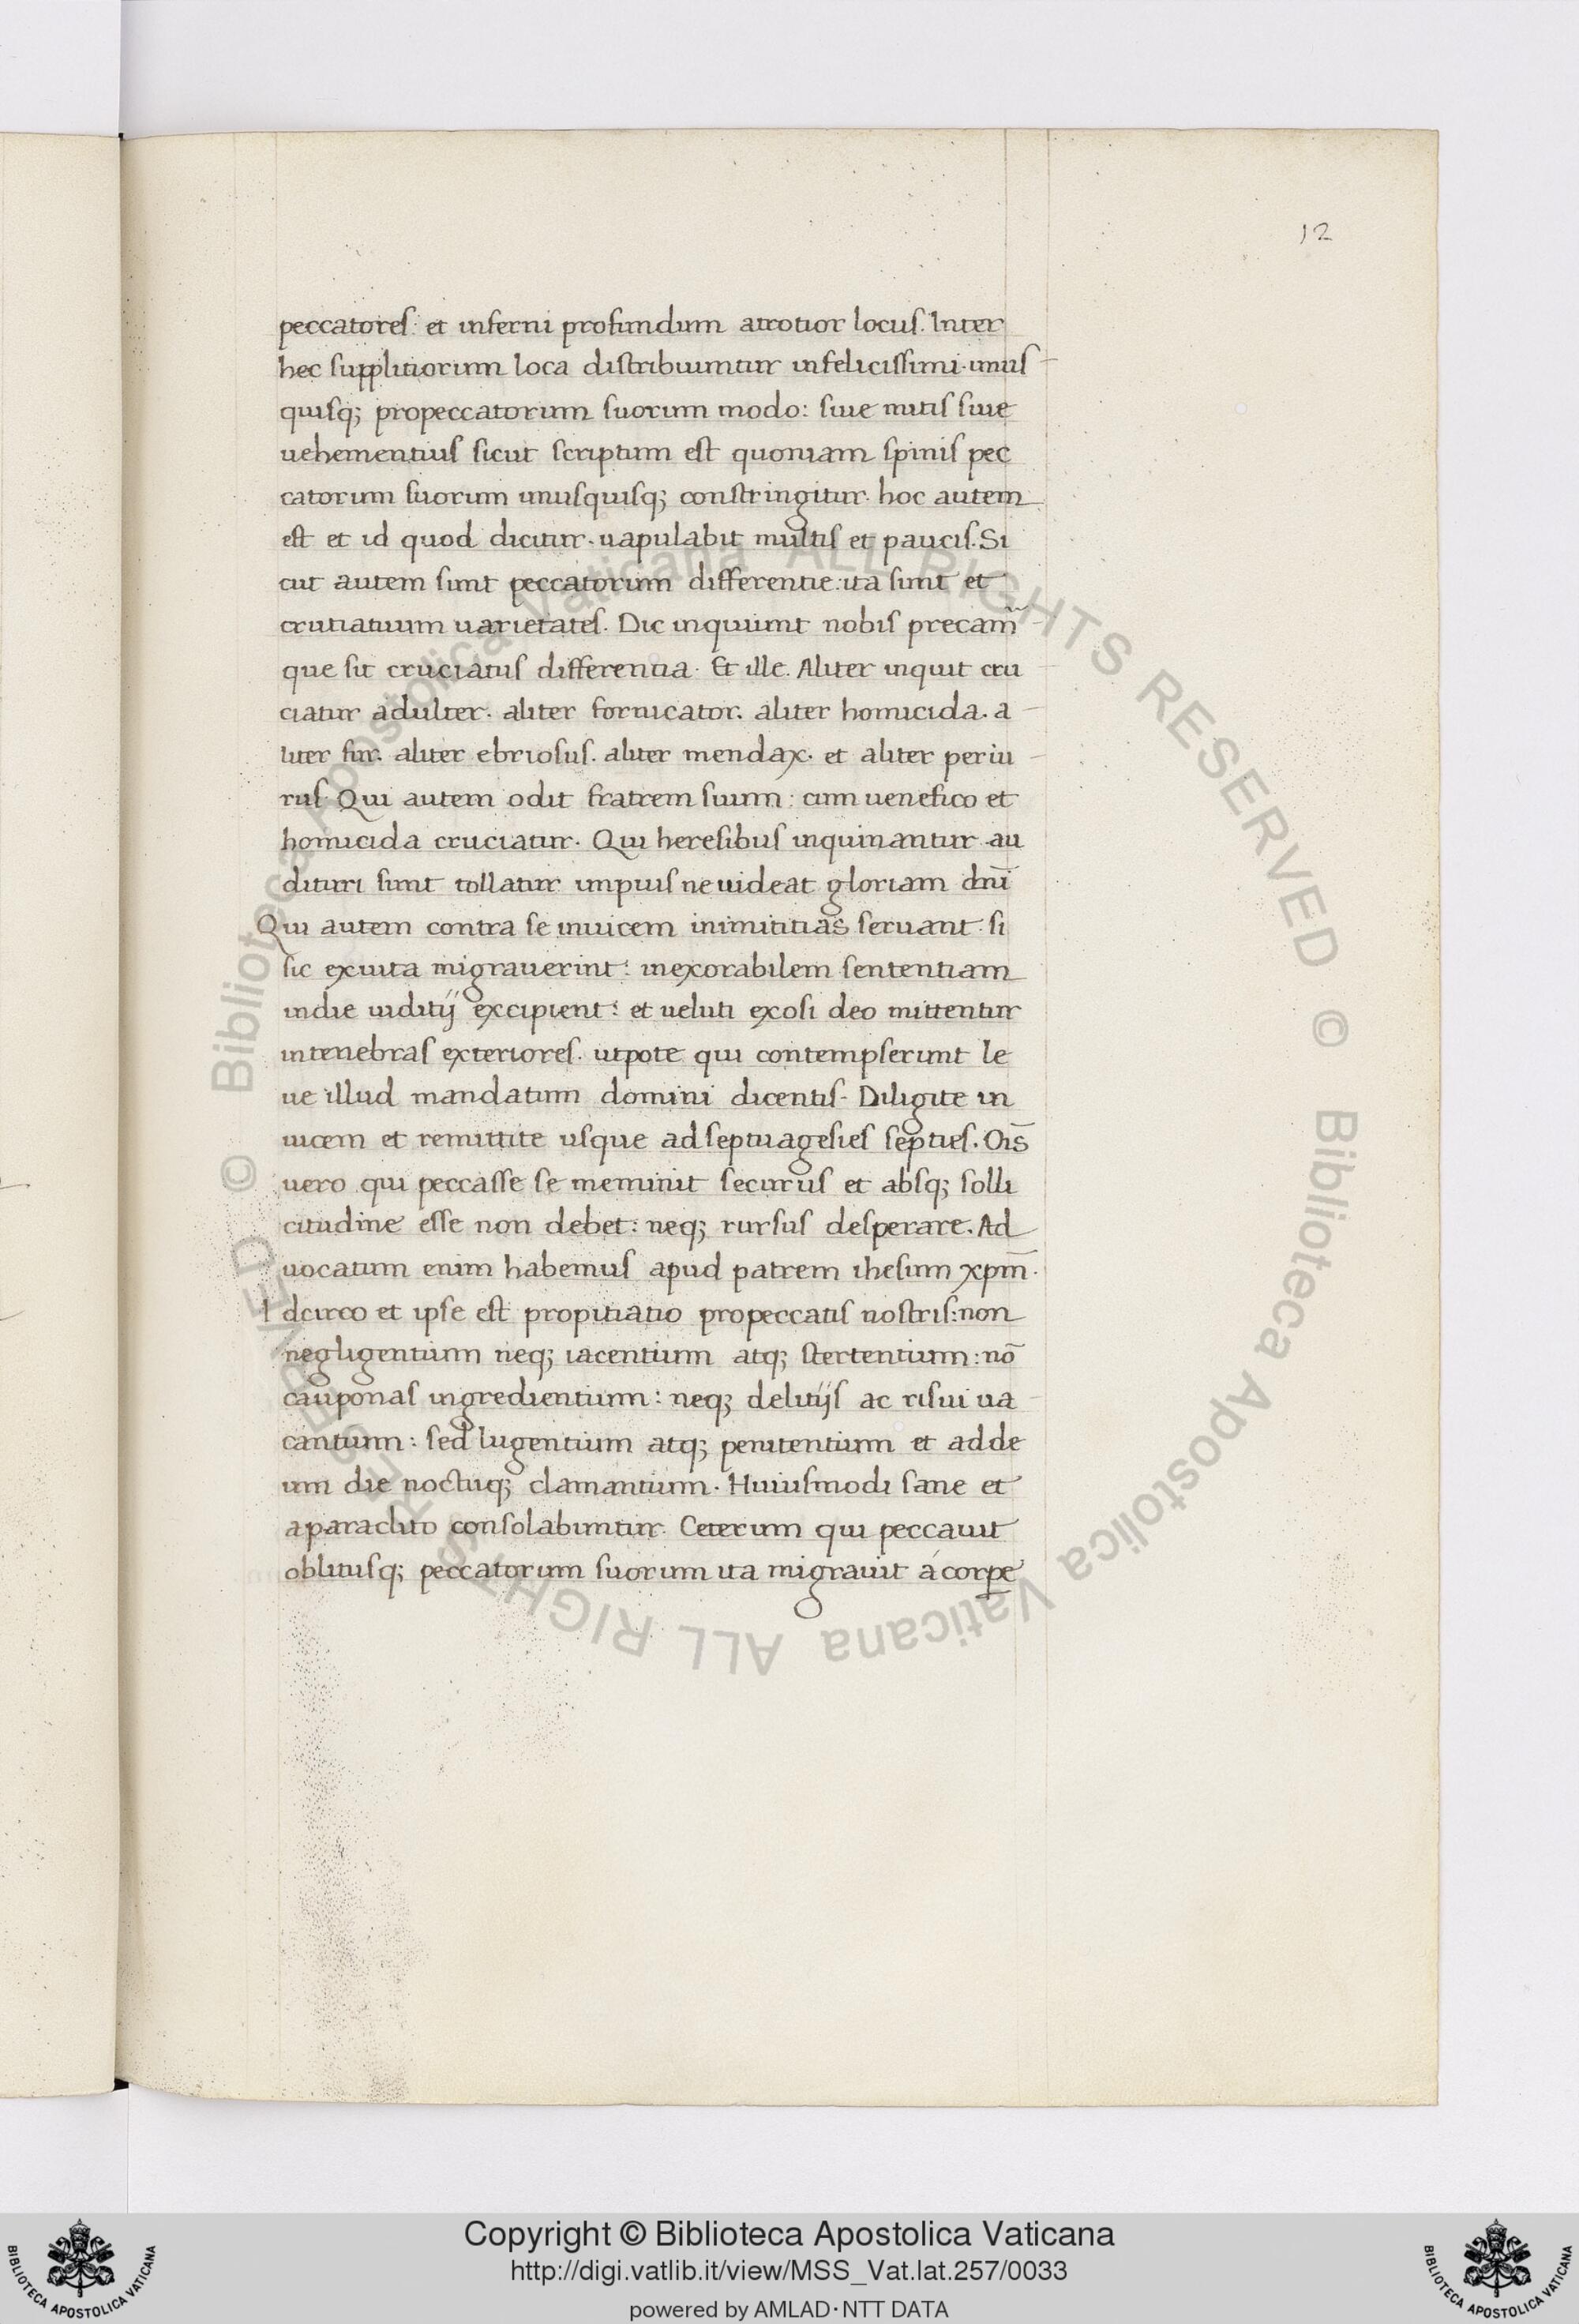 12
peccatores: et inferni profundum atrotior locus. Inter
hec supplitiorum loca distribuuntur infelicissimi. unus
quisq; propeccatorum suorum modo: siue mitis siue
uehementius sicut scriptum est quoniam spinis pec
catorum suorum unusquisq; constringitur. hoc autem
est et id quod dicitur. uapulabit multis et paucis. Si
cut autem sunt peccatorum differentie: ita sunt et
crutiatuum uarietates. Dic inquiunt nobis precam̃
que sit cruciatus differentia. Et ille. Aliter inquit cru
ciatur adulter. aliter fornicator. aliter homicida. a
liter fur. aliter ebriosus. aliter mendax. et aliter periu
rus. Qui autem odit fratrem suum: cum uenefico et
homicida cruciatur. Qui heresibus inquinantur au
dituri sunt tollatur impius neuideat gloriam dn̄i
Qui autem contra se inuicem inimititias seruant: si
sic exuita migrauerint: inexorabilem sententiam
indie iuditij excipient: et ueluti exosi deo mittentur
intenebras exteriores. utpote qui contempserunt le
ue illud mandatum domini dicentis. Diligite in
uicem et remittite usque adseptuagesies septies. Oīs
uero qui peccasse se meminit securus et absq; solli
citudine esse non debet: neq; rursus desperare. Ad
uocatum enim habemus apud patrem ihesum xpm̄.
Idcirco et ipse est propitiatio propeccatis nostris: non
negligentium neq; iacentium atq; stertentium: nō
cauponas ingredientium: neq; delitijs ac risui ua
cantium: sed lugentium atq; penitentium et adde
um die noctuq; clamantium. Huiusmodi sane et
aparaclito consolabuntur. Ceterum qui peccauit
oblitusq; peccatorum suorum ita migrauit ácorpe
© Biblioteca Apostolica Vaticana ALL RIGHTS RESERVED © Biblioteca Apostolica Vaticana ALL RIGHTS RESERVED
Copyright © Biblioteca Apostolica Vaticana
http://digi.vatlib.it/view/MSS_Vat.lat.257/0033
powered by AMLAD·NTT DATA
BIBLIOTECA APOSTOLICA VATICANA
BIBLIOTECA APOSTOLICA VATICANA